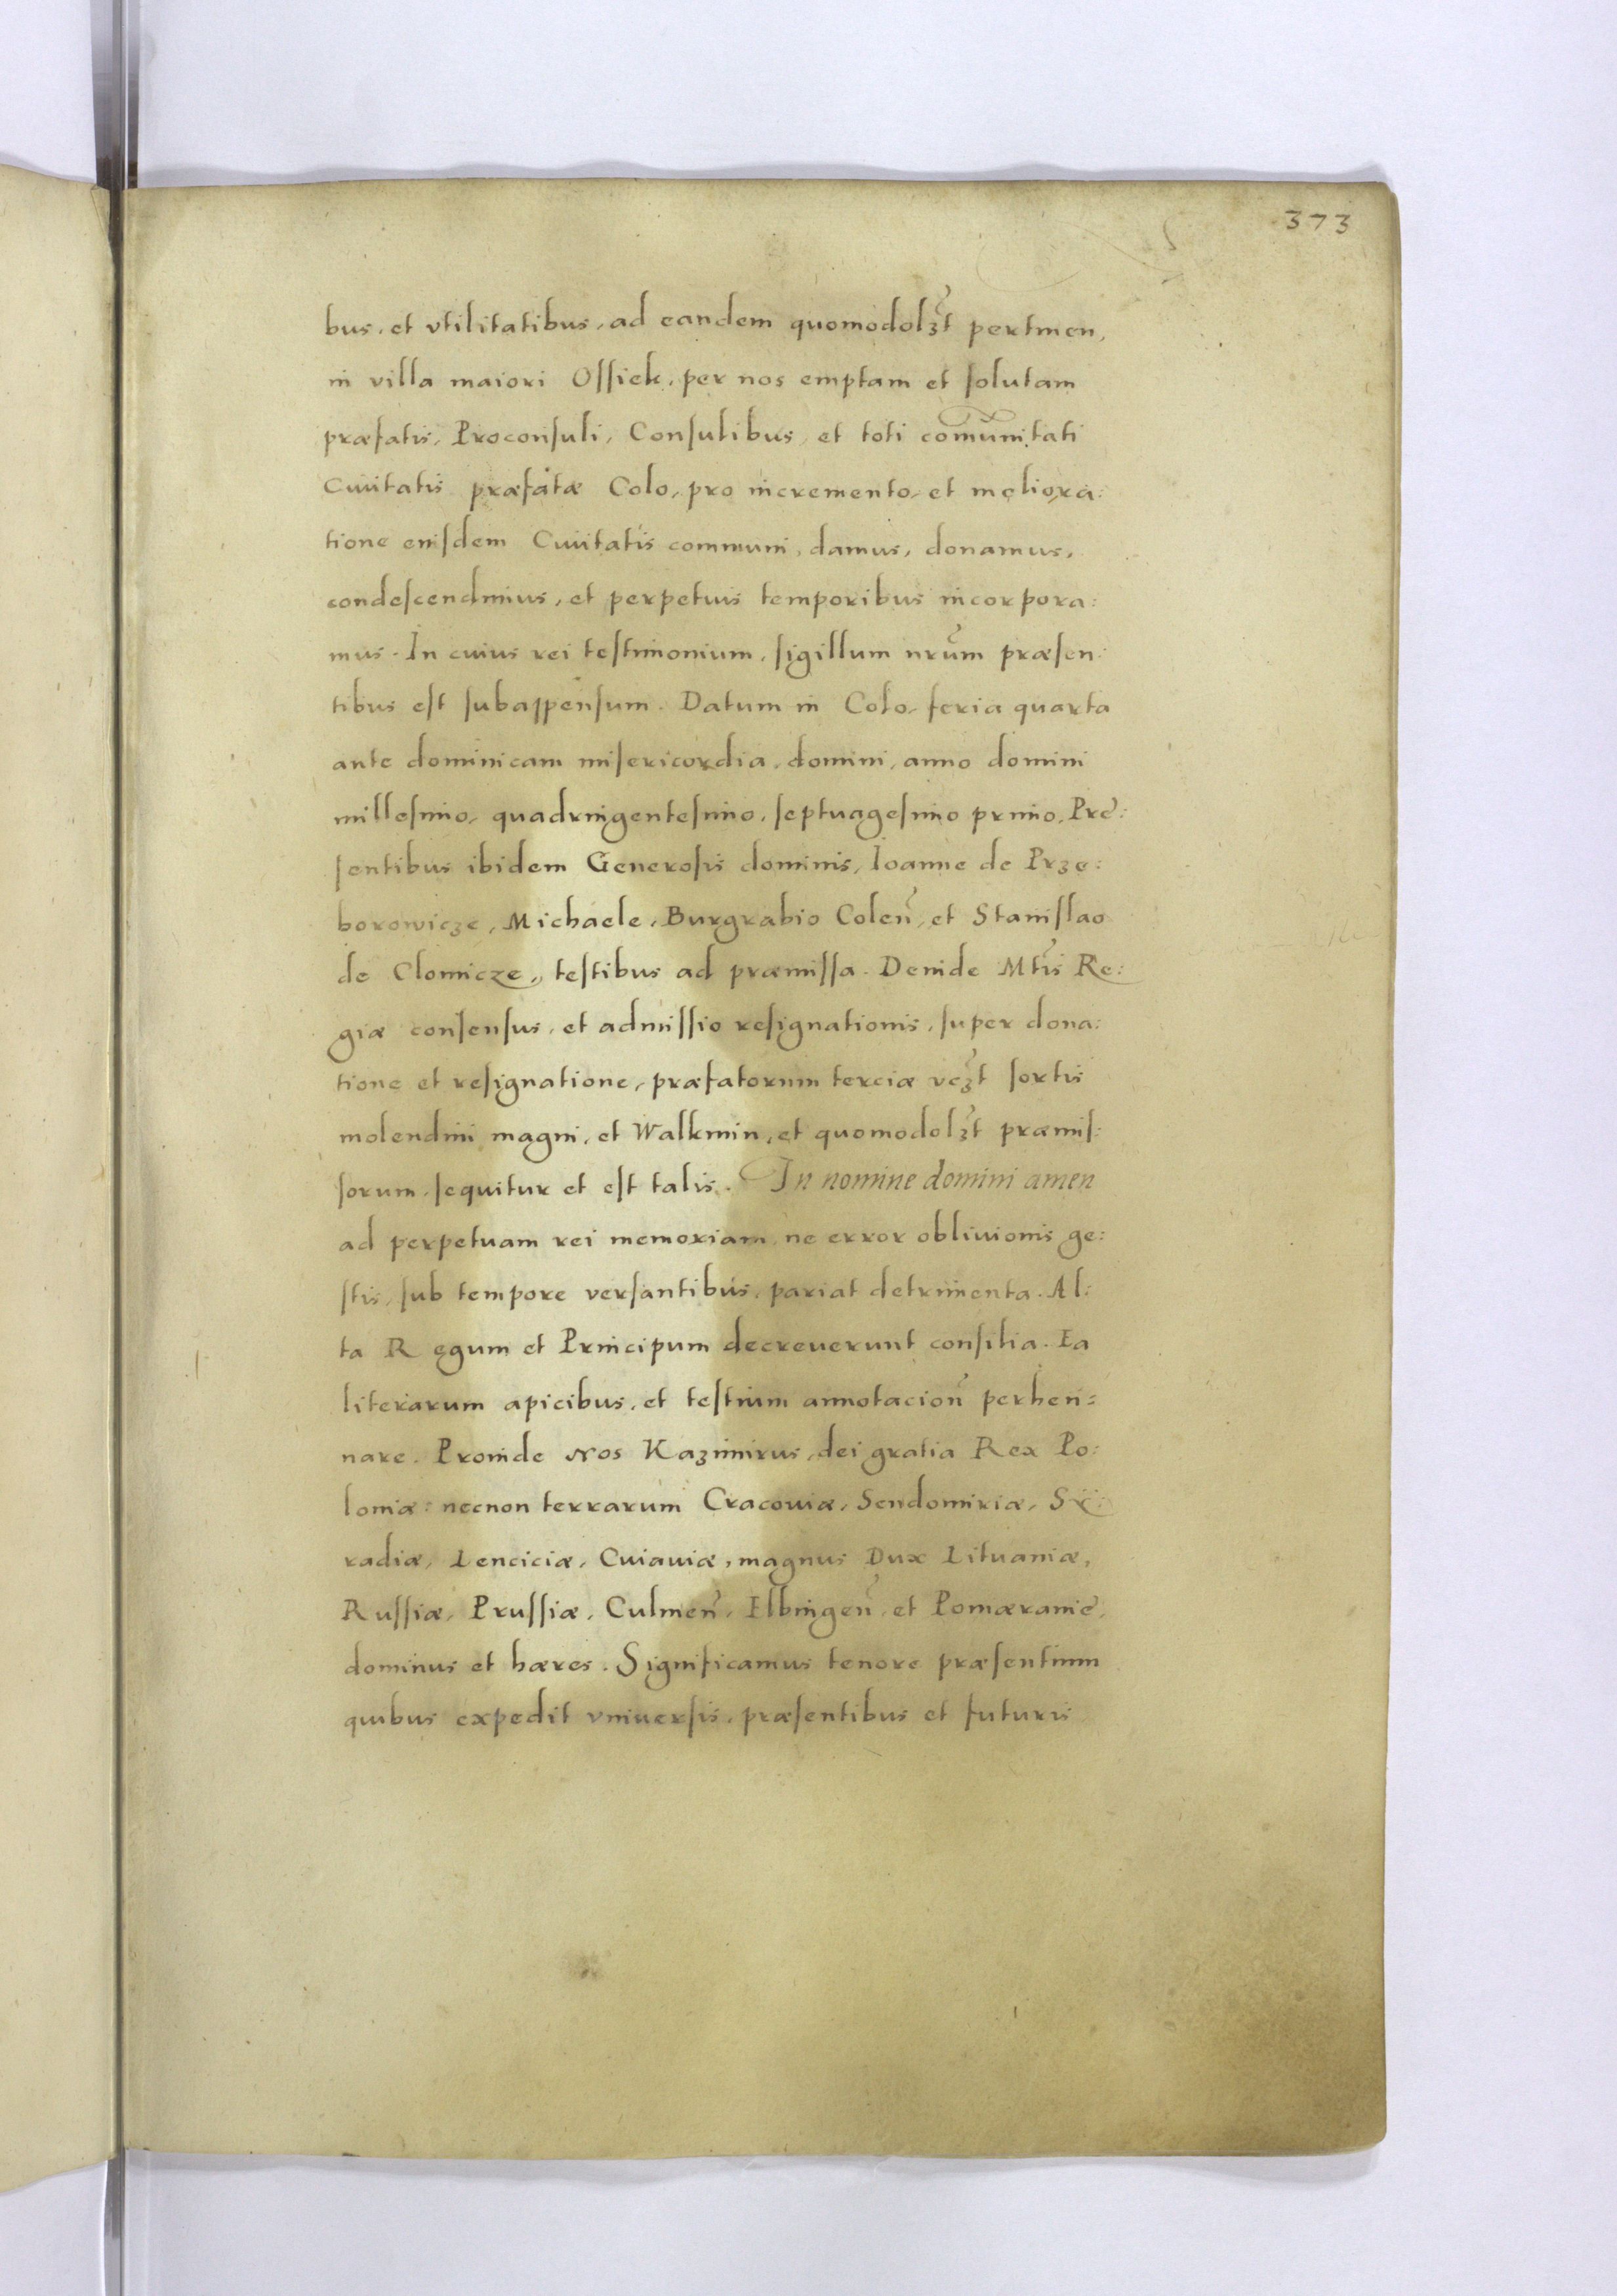 373
bus, et vtilitatibus, ad eandem quomodolʒt pertinen,
in villa maiori Ossiek, per nos emptam et solutam
præfatis, Proconsuli, Consulibus, et toti com̄unitati
Ciuitatis præfatæ Colo, pro incremento, et meliora:
tione eiusdem Ciuitatis communi, damus, donamus,
condescendimus, et perpetuis temporibus incorpora:
mus. In cuius rei testimonium, sigillum nr̄um præsen:
tibus est subappensum. Datum in Colo, feria quarta
ante dominicam misericordia, domini, anno domini
millesimo, quadringentesimo, septuagesimo primo, Præ:
sentibus ibidem Generosis dominis, Ioanne de Prze:
borowicze, Michaele, Burgrabio Colen̄, et Stanislao
de Clomicze, testibus ad præmissa. Deinde Mt̄is Re:
giæ consensus, et admissio resignationis, super dona:
tione et resignatione, præfatorum terciæ vcʒt sortis
molendini magni, et Walkmin, et quomodolʒt præmis:
sorum, sequitur et est talis. In nomine domini amen
ad perpetuam rei memoriam, ne error obliuionis ge:
stis, sub tempore versantibus, pariat detrimenta. Al:
ta Regum et Principum decreuerunt consilia. Ea
literarum apicibus, et testium annotacion̄ perhen=
nare. Proinde Nos Kazimirus, dei gratia Rex Po:
loniæ: necnon terrarum Cracouiæ, Sendomiriæ, Si:
radiæ, Lenciciæ, Cuiauiæ, magnus Dux Lituaniæ,
Russiæ, Prussiæ, Culmen̄, Elbingen̄, et Pomæraniæ,
dominus et hæres. Significamus tenore præsentium
quibus expedit vniuersis, præsentibus et futuris